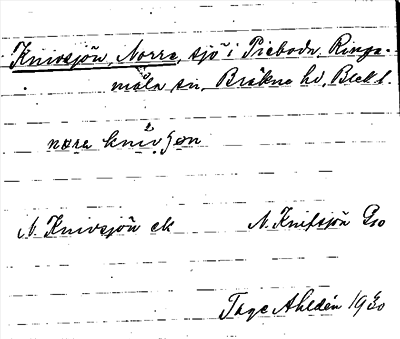 Knivsjön, Norra, sjö i Pieboda, Ringa-
måla sn, Bräkne hd, Blekl.
nɷra knivʒøn
N. Knivsjön ek N. Knifsjön Gso
Tage Ahldén 1930